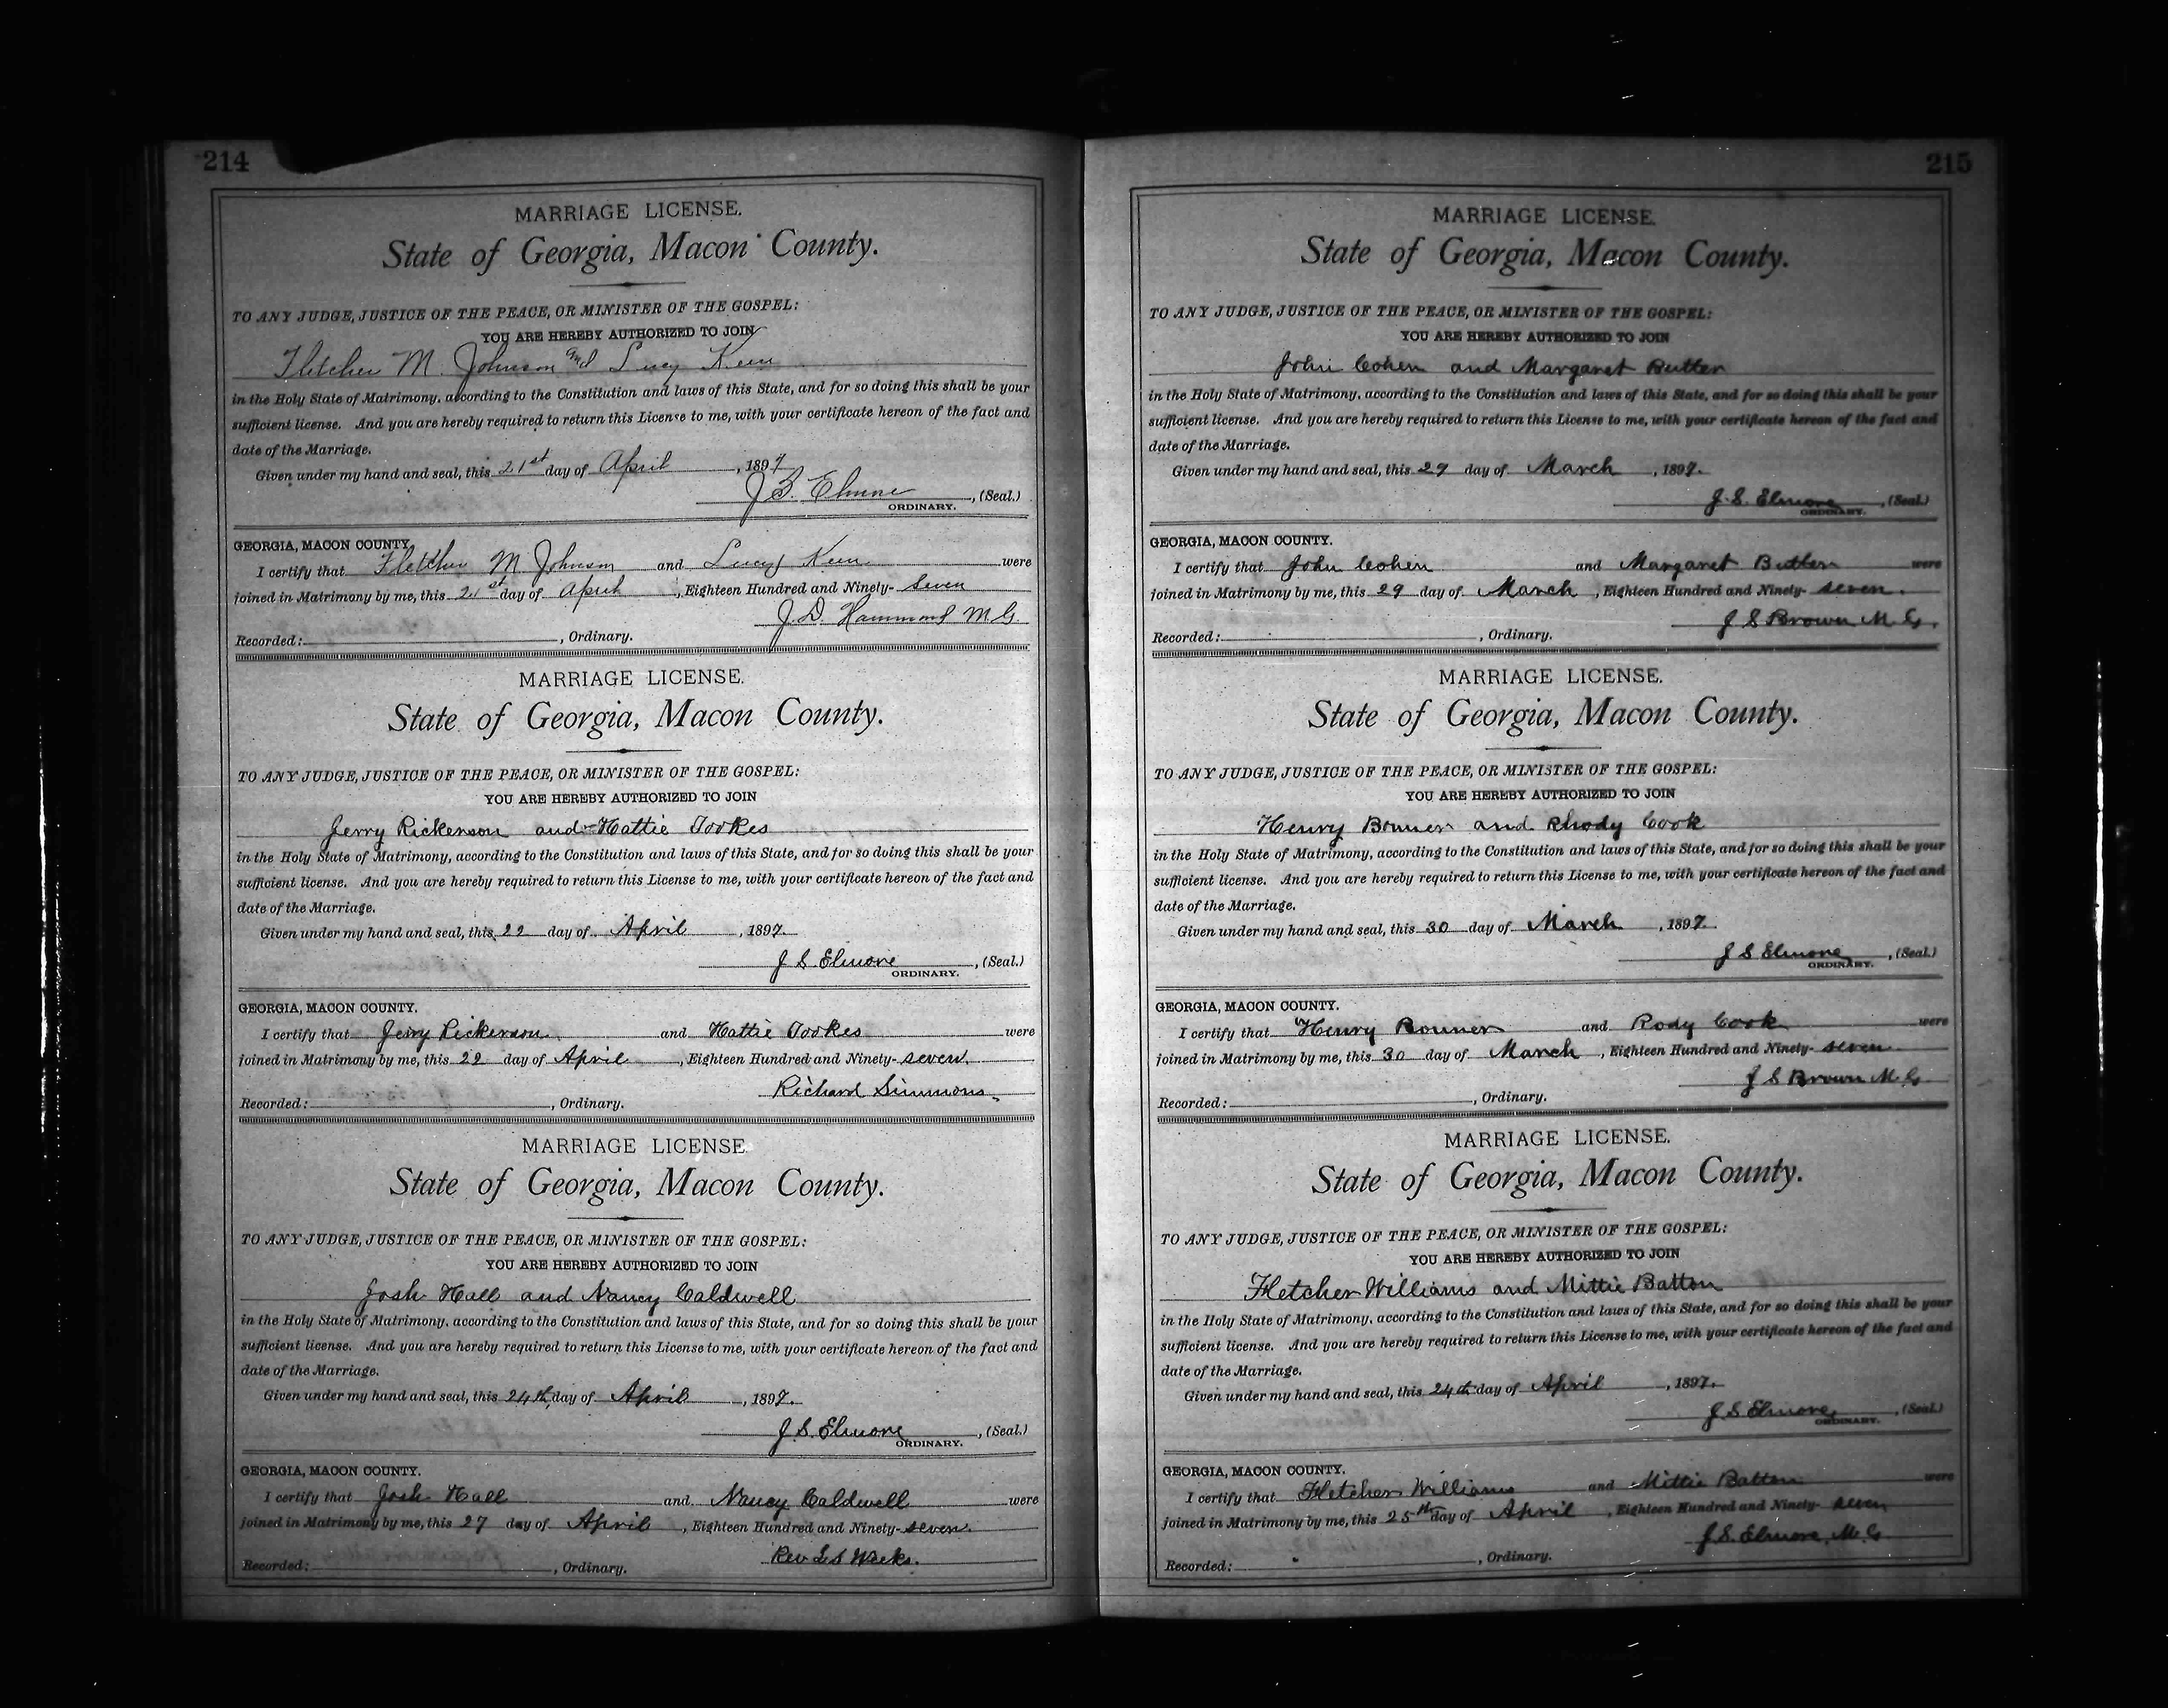 214
MARRIAGE LICENSE.
State of Georgia, Macon County.
TO ANY JUDGE, JUSTICE OF THE PEACE, OR MINISTER OF THE GOSPEL:
YOU ARE HEREBY AUTHORIZED TO JOIN
Fletcher M. Johnson and Lucy
in the Holy State of Matrimony, according to the Constitution and laws of this State, and for so doing this shall be your
sufficient license. And you are hereby required to return this License to me, with your certificate hereon of the fact and
date of the Marriage.
Given under my hand and seal, this 21st day of April, 1897
J. S. Elmore, (Seal.)
ORDINARY.
GEORGIA, MACON COUNTY.
I certify that Fletcher M. Johnson and Lucy were
joined in Matrimony by me, this 21st day of April, Eighteen Hundred and Ninety-seven
J. D. Hammond M. G.
Recorded: , Ordinary.
MARRIAGE LICENSE.
State of Georgia, Macon County.
TO ANY JUDGE, JUSTICE OF THE PEACE, OR MINISTER OF THE GOSPEL:
YOU ARE HEREBY AUTHORIZED TO JOIN
Jerry Rickerson and Hattie Tookes
in the Holy State of Matrimony, according to the Constitution and laws of this State, and for so doing this shall be your
sufficient license. And you are hereby required to return this License to me, with your certificate hereon of the fact and
date of the Marriage.
Given under my hand and seal, this 22 day of April, 1897.
J S Elmore, (Seal.)
ORDINARY.
GEORGIA, MACON COUNTY.
I certify that Jerry Rickerson and Hattie Tookes were
joined in Matrimony by me, this 22 day of April, Eighteen Hundred and Ninety-seven.
Richard Simmons.
Recorded: , Ordinary.
MARRIAGE LICENSE
State of Georgia, Macon County.
TO ANY JUDGE, JUSTICE OF THE PEACE, OR MINISTER OF THE GOSPEL:
YOU ARE HEREBY AUTHORIZED TO JOIN
Josh Hall and Nancy Caldwell
in the Holy State of Matrimony, according to the Constitution and laws of this State, and for so doing this shall be your
sufficient license. And you are hereby required to return this License to me, with your certificate hereon of the fact and
date of the Marriage.
Given under my hand and seal, this 24th, day of April, 1897.
J. S. Elmore, (Seal.)
ORDINARY.
GEORGIA, MACON COUNTY.
I certify that Josh Hall and Nancy Caldwell were
joined in Matrimony by me, this 27 day of April, Eighteen Hundred and Ninety-seven.
Rev
Recorded: , Ordinary.
215
MARRIAGE LICENSE.
State of Georgia, Macon County.
TO ANY JUDGE, JUSTICE OF THE PEACE, OR MINISTER OF THE GOSPEL:
YOU ARE HEREBY AUTHORIZED TO JOIN
John Cohen and Margaret Butler
in the Holy State of Matrimony, according to the Constitution and laws of this State, and for so doing this shall be your
sufficient license. And you are hereby required to return this License to me, with your certificate hereon of the fact and
date of the Marriage.
Given under my hand and seal, this 29 day of March, 1897.
J. S. Elmore, (Seal.)
ORDINARY.
GEORGIA, MACON COUNTY.
I certify that John Cohen and Margaret Butler were
joined in Matrimony by me, this 29 day of March, Eighteen Hundred and Ninety-seven.
J S Brown M. G.
Recorded: , Ordinary.
MARRIAGE LICENSE.
State of Georgia, Macon County.
TO ANY JUDGE, JUSTICE OF THE PEACE, OR MINISTER OF THE GOSPEL:
YOU ARE HEREBY AUTHORIZED TO JOIN
Henry Bonner and Rhody Cook
in the Holy State of Matrimony, according to the Constitution and laws of this State, and for so doing this shall be your
sufficient license. And you are hereby required to return this License to me, with your certificate hereon of the fact and
date of the Marriage.
Given under my hand and seal, this 30 day of March, 1897.
J S Elmore, (Seal.)
ORDINARY.
GEORGIA, MACON COUNTY.
I certify that Henry Bonner and Rody Cook were
joined in Matrimony by me, this 30 day of March, Eighteen Hundred and Ninety-seven
J S Brown M. G.
Recorded: , Ordinary.
MARRIAGE LICENSE.
State of Georgia, Macon County.
TO ANY JUDGE, JUSTICE OF THE PEACE, OR MINISTER OF THE GOSPEL:
YOU ARE HEREBY AUTHORIZED TO JOIN
Fletcher Williams and Mittie Batton
in the Holy State of Matrimony, according to the Constitution and laws of this State, and for so doing this shall be your
sufficient license. And you are hereby required to return this License to me, with your certificate hereon of the fact and
date of the Marriage.
Given under my hand and seal, this 24th day of April, 1897.
J S Elmore, (Seal.)
ORDINARY.
GEORGIA, MACON COUNTY.
I certify that Fletcher Williams and Mittie Batton were
joined in Matrimony by me, this 25th day of April, Eighteen Hundred and Ninety-seven
J. S. Elmore, M. G
Recorded: , Ordinary.